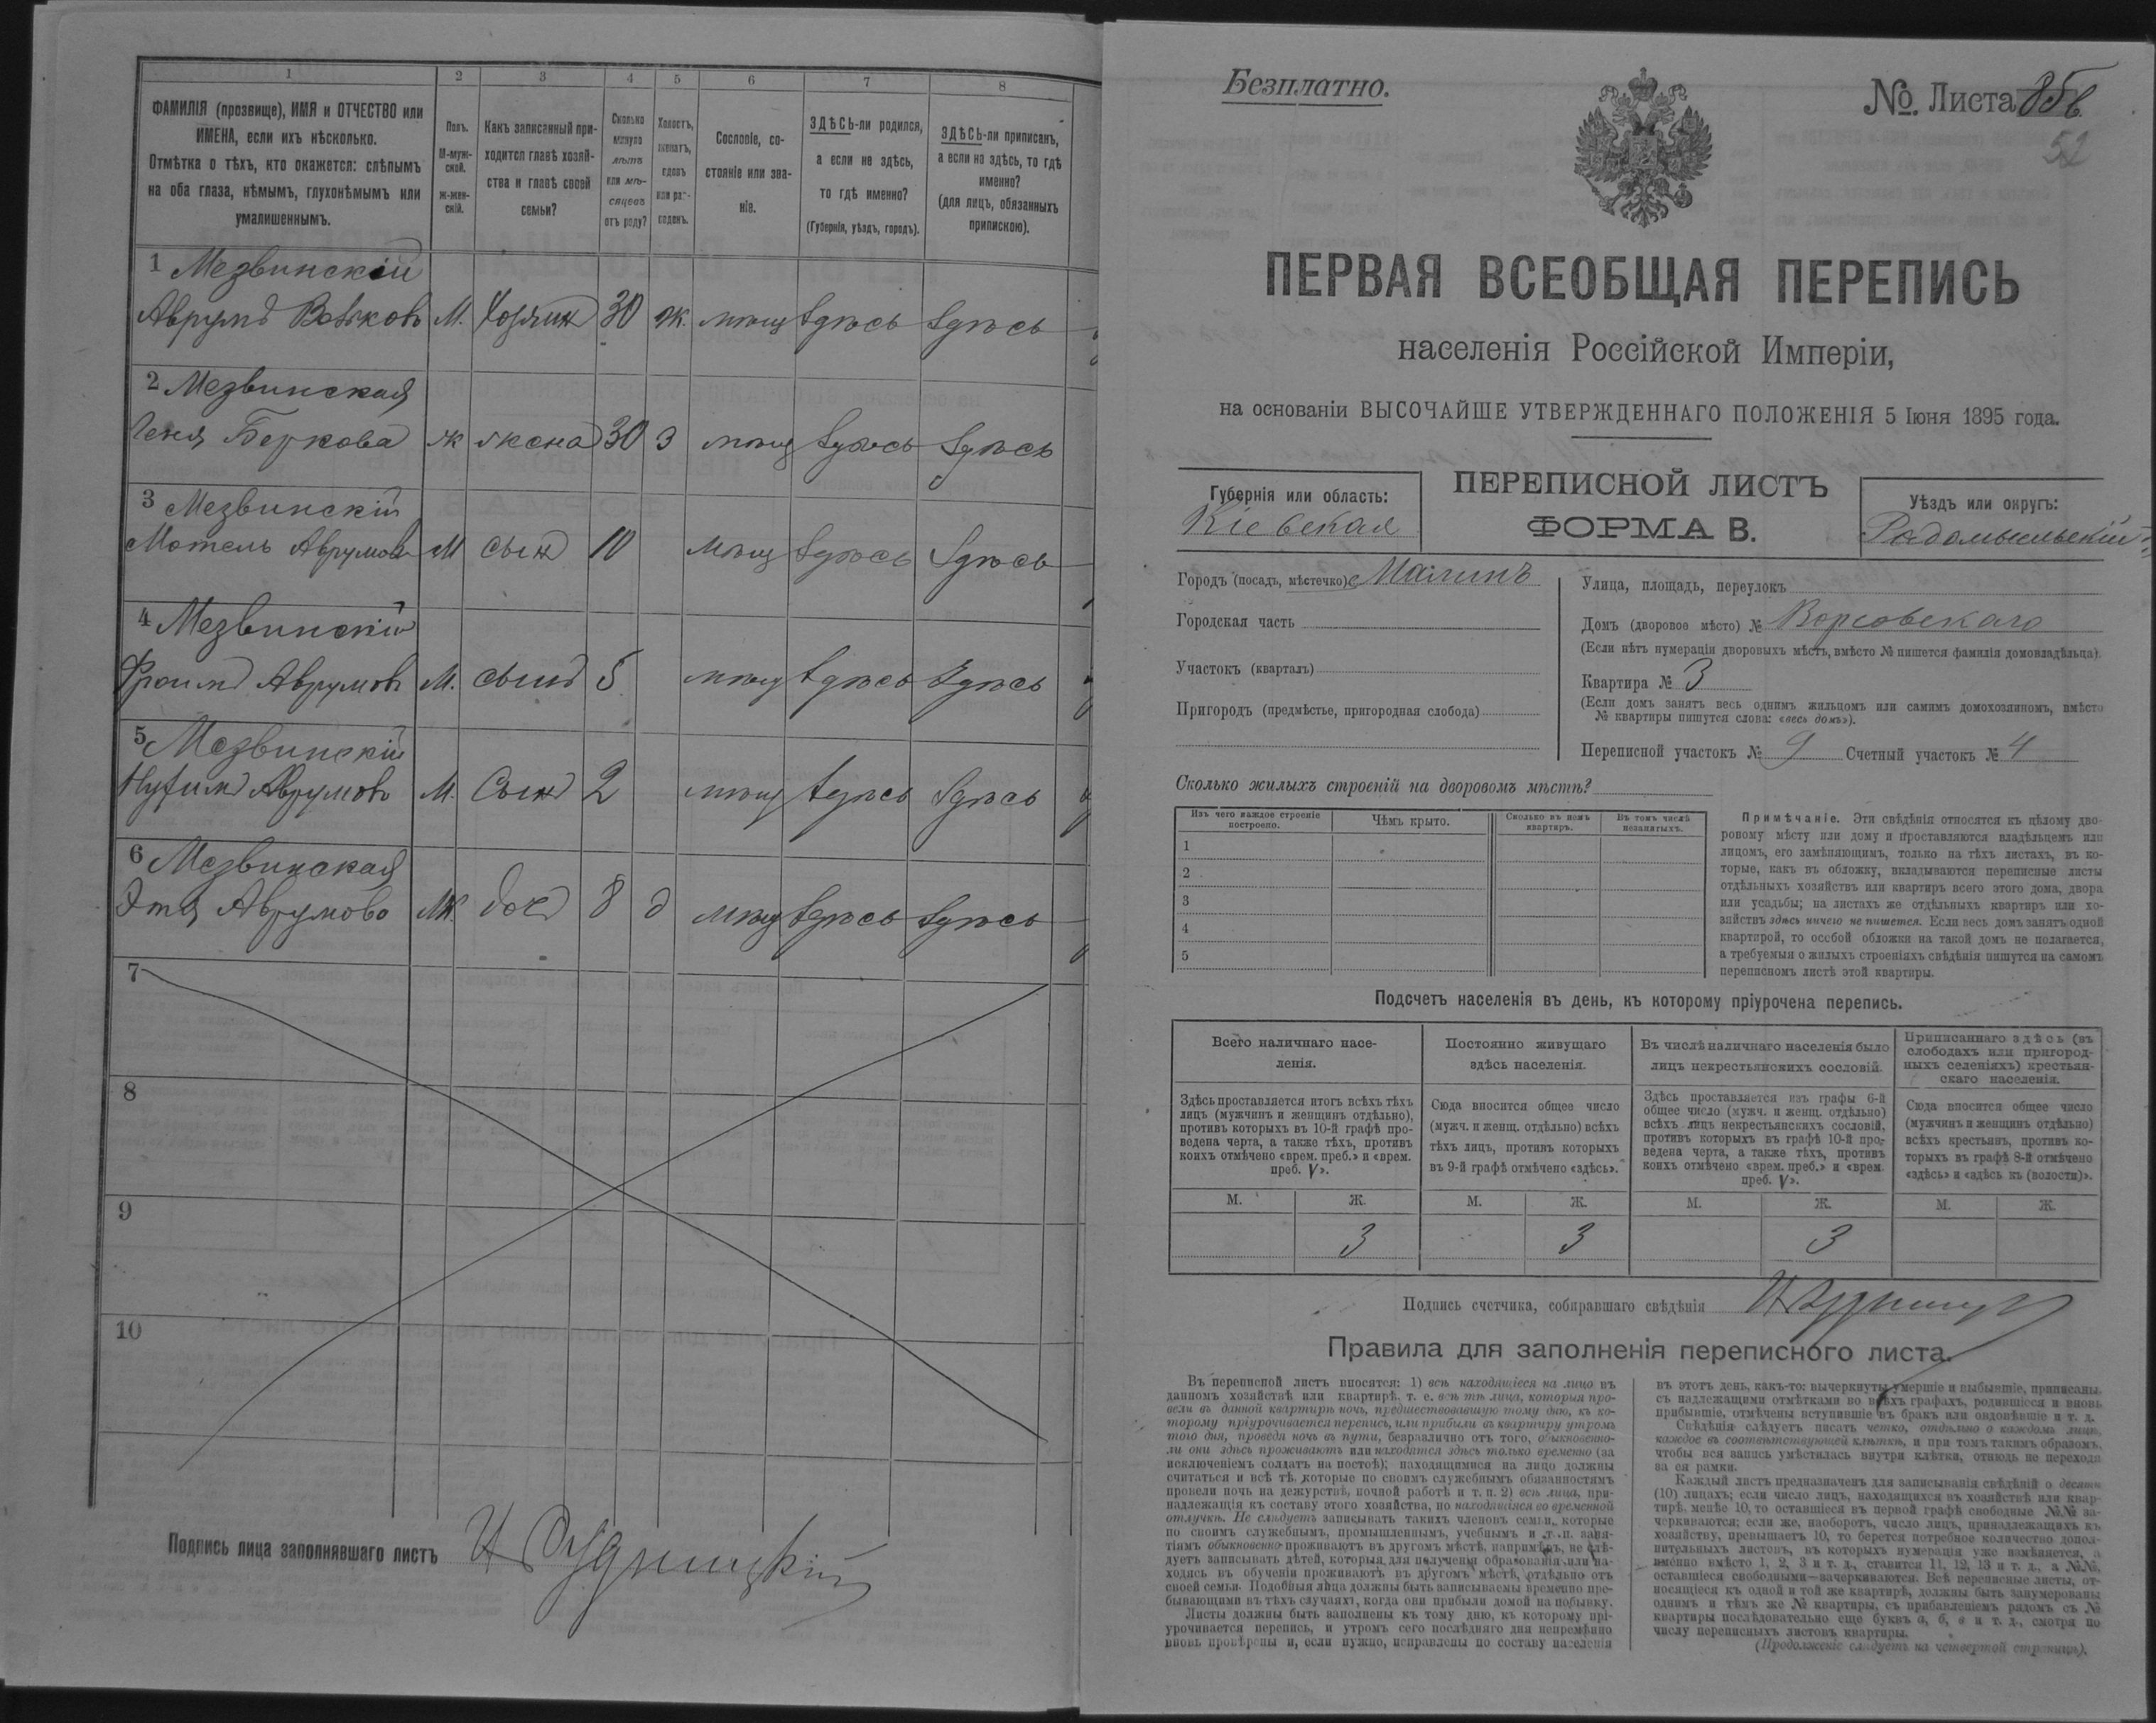 1 2 3 4 5 6 7 8
ФАМИЛІЯ (прозвище), ИМЯ и ОТЧЕСТВО или
ИМЕНА, если ихъ нѣсколько.
Отмѣтка о тѣхъ, кто окажется: слѣпымъ
на оба глаза, нѣмымъ, глухонѣмымъ или
умалишеннымъ.
Полъ.
М-муж-
ской.
Ж-жен-
скій.
Какъ записанный при-
ходится главѣ хозяй-
ства и главѣ своей
семьи?
Сколько
минуло
лѣтъ
или мѣ-
сяцевъ
отъ роду?
Холостъ,
женатъ,
вдовъ
или раз-
веденъ.
Сословіе, со-
стояніе или зва-
ніе.
ЗДѢСЬ-ли родился,
а если не здѣсь,
то гдѣ именно?
(Губернія, уѣздъ, городъ).
ЗДѢСЬ-ли приписанъ,
а если не здѣсь, то гдѣ
именно?
(для лицъ, обязанныхъ
припискою).
1 Мезвинскій
Аврумъ Вовковъ М. Хозяинъ 30 ж. мѣщ здѣсь здѣсь
2 Мезвинская
Геня Беркова ж жена 30 з мѣщ здѣсь здѣсь
3 Мезвинскій
Мотель Аврумовъ М сынъ 10 мѣщ здѣсь здѣсь
4 Мезвинскій
Фроимъ Аврумовъ М. сынъ 5 мѣщ здѣсь здѣсь
5 Мезвинскій
Нухимъ Аврумовъ М. Сынъ 2 мѣщ здѣсь здѣсь
6 Мезвинская
Этя Аврумова Ж. доч 8 д мѣщ здѣсь здѣсь
7
8
9
10
Подпись лица заполнявшаго листъ И Рудницкій
Безплатно.
№. Листа 85в
52
ПЕРВАЯ ВСЕОБЩАЯ ПЕРЕПИСЬ
населенія Россійской Имперіи,
на основаніи ВЫСОЧАЙШЕ УТВЕРЖДЕННАГО ПОЛОЖЕНІЯ 5 Іюня 1895 года.
Губернія или область:
Кіевская
ПЕРЕПИСНОЙ ЛИСТЪ
ФОРМА В.
Уѣздъ или округъ:
Радомысльскій
Городъ (посадъ, мѣстечко) Малинъ
Городская часть
Участокъ (кварталъ)
Пригородъ (предмѣстье, пригородная слобода)
Улица, площадь, переулокъ
Домъ (дворовое мѣсто) № Ворсовскаго
(Если нѣтъ нумераціи дворовыхъ мѣстъ, вмѣсто № пишется фамилія домовладѣльца).
Квартира № 3
(Если домъ занятъ весь однимъ жильцомъ или самимъ домохозяиномъ, вмѣсто
№ квартиры пишутся слова: «весь домъ»).
Переписной участокъ № 9 Счетный участокъ № 4
Сколько жилыхъ строеній на дворовомъ мѣстѣ?
Изъ чего каждое строеніе
построено.
Чѣмъ крыто.
Сколько въ немъ
квартиръ.
Въ томъ числѣ
незанятыхъ.
1
2
3
4
5
Примѣчаніе. Эти свѣдѣнія относятся къ цѣлому дво-
ровому мѣсту или дому и проставляются владѣльцемъ или
лицомъ, его замѣняющимъ, только на тѣхъ листахъ, въ ко-
торые, какъ въ обложку, вкладываются переписные листы
отдѣльныхъ хозяйствъ или квартиръ всего этого дома, двора
или усадьбы; на листахъ же отдѣльныхъ квартиръ или хо-
зяйствъ здѣсь ничего не пишется. Если весь домъ занятъ одной
квартирой, то особой обложки на такой домъ не полагается,
а требуемыя о жилыхъ строеніяхъ свѣдѣнія пишутся на самомъ
переписномъ листѣ этой квартиры.
Подсчетъ населенія въ день, къ которому пріурочена перепись.
Всего наличнаго насе-
ленія.
Постоянно живущаго
здѣсь населенія.
Въ числѣ наличнаго населенія было
лицъ некрестьянскихъ сословій.
Приписаннаго здѣсь (въ
слободахъ или пригород-
ныхъ селеніяхъ) крестьян-
скаго населенія.
Здѣсь проставляется итогъ всѣхъ тѣхъ
лицъ (мужчинъ и женщинъ отдѣльно),
противъ которыхъ въ 10-й графѣ про-
ведена черта, а также тѣхъ, противъ
коихъ отмѣчено «врем. преб.» и «врем.
преб. V».
Сюда вносится общее число
(мужч. и женщ. отдѣльно) всѣхъ
тѣхъ лицъ, противъ которыхъ
въ 9-й графѣ отмѣчено «здѣсь».
Здѣсь проставляется изъ графы 6-й
общее число (мужч. и женщ. отдѣльно)
всѣхъ лицъ некрестьянскихъ сословій,
противъ которыхъ въ графѣ 10-й про-
ведена черта, а также тѣхъ, противъ
коихъ отмѣчено «врем. преб.» и «врем.
преб. V».
Сюда вносится общее число
(мужчинъ и женщинъ отдѣльно)
всѣхъ крестьянъ, противъ ко-
торыхъ въ графѣ 8-й отмѣчено
«здѣсь» и «здѣсь къ (волости)».
М. Ж. М. Ж. М. Ж. М. Ж.
3 3 3
Подпись счетчика, собиравшаго свѣдѣнія
Правила для заполненія переписного листа.
Въ переписной листъ вносятся: 1) всѣ находящіеся на лицо въ
данномъ хозяйствѣ или квартирѣ, т. е. всѣ тѣ лица, которыя про-
вели въ данной квартирѣ ночь, предшествовавшую тому дню, къ ко-
торому пріурочивается перепись, или прибыли въ квартиру утромъ
того дня, проведя ночь въ пути, безразлично отъ того, обыкновенно-
ли они здѣсь проживаютъ или находятся здѣсь только временно (за
исключеніемъ солдатъ на постоѣ); находящимися на лицо должны
считаться и всѣ тѣ, которые по своимъ служебнымъ обязанностямъ
провели ночь на дежурствѣ, ночной работѣ и т. п. 2) всѣ лица, при-
надлежащія къ составу этого хозяйства, но находящіяся во временной
отлучкѣ. Не слѣдуетъ записывать такихъ членовъ семьи, которые
по своимъ служебнымъ, промышленнымъ, учебнымъ и т. п. заня-
тіямъ обыкновенно проживаютъ въ другомъ мѣстѣ, напримѣръ, не слѣ-
дуетъ записывать дѣтей, которыя для полученія образованія или на-
ходясь въ обученіи проживаютъ въ другомъ мѣстѣ, отдѣльно отъ
своей семьи. Подобныя лица должны быть записываемы временно пре-
бывающими въ тѣхъ случаяхъ, когда они прибыли домой на побывку.
Листы должны быть заполнены къ тому дню, къ которому прі-
урочивается перепись, и утромъ сего послѣдняго дня непремѣнно
вновь провѣрены и, если нужно, исправлены по составу населенія
въ этотъ день, какъ-то: вычеркнуты умершіе и выбывшіе, приписаны,
съ надлежащими отмѣтками во всѣхъ графахъ, родившіеся и вновь
прибывшіе, отмѣчены вступившіе въ бракъ или овдовѣвшіе и т. д.
Свѣдѣнія слѣдуетъ писать четко, отдѣльно о каждомъ лицѣ,
каждое въ соотвѣтствующей клѣткѣ, и при томъ такимъ образомъ,
чтобы вся запись умѣстилась внутри клѣтки, отнюдь не переходя
за ея рамки.
Каждый листъ предназначенъ для записыванія свѣдѣній о десяти
(10) лицахъ; если число лицъ, находящихся въ хозяйствѣ или квар-
тирѣ, менѣе 10, то оставшіеся въ первой графѣ свободные №№ за-
черкиваются; если же, наоборотъ, число лицъ, принадлежащихъ къ
хозяйству, превышаетъ 10, то берется потребное количество допол-
нительныхъ листовъ, въ которыхъ нумерація уже измѣняется, а
именно вмѣсто 1, 2, 3 и т. д., ставится 11, 12, 13 и т. д., а №№,
оставшіеся свободными—зачеркиваются. Всѣ переписные листы, от-
носящіеся къ одной и той же квартирѣ, должны быть занумерованы
однимъ и тѣмъ же № квартиры, съ прибавленіемъ рядомъ съ №
квартиры послѣдовательно еще буквъ а, б, в и т. д., смотря по
числу переписныхъ листовъ квартиры.
(Продолженіе слѣдуетъ на четвертой страницѣ).